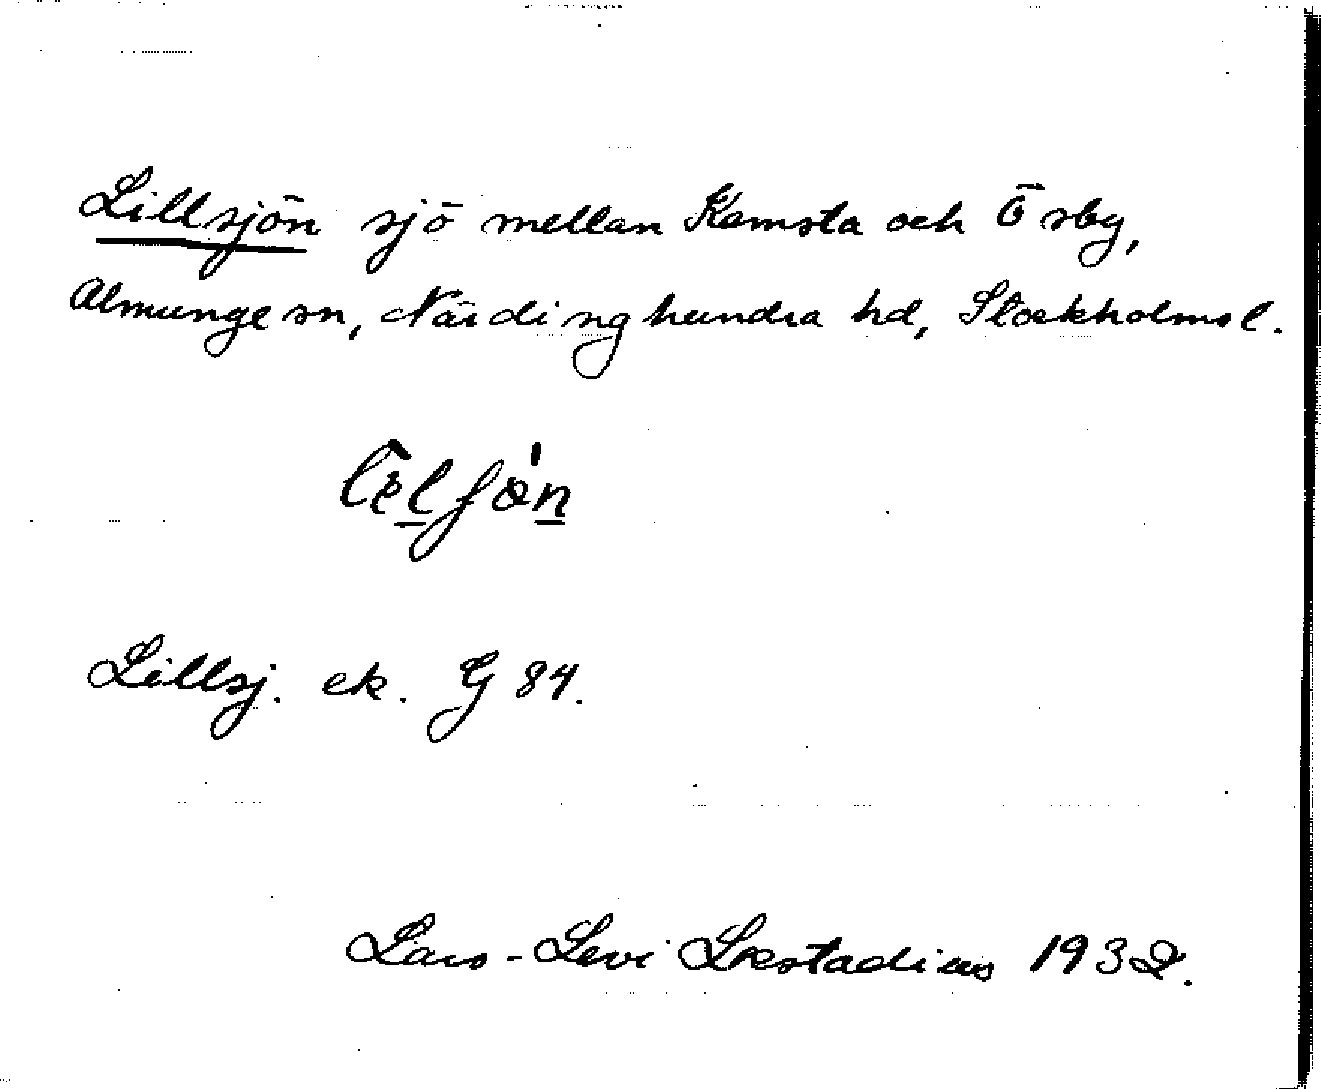 Lillsjön sjö mellan Kamsta och Ösby,
Almunge sn, Närdinghundra hd, Stockholms l.
Lillsj. ek. G 84.
Lars-Levi Læstadius 1932.